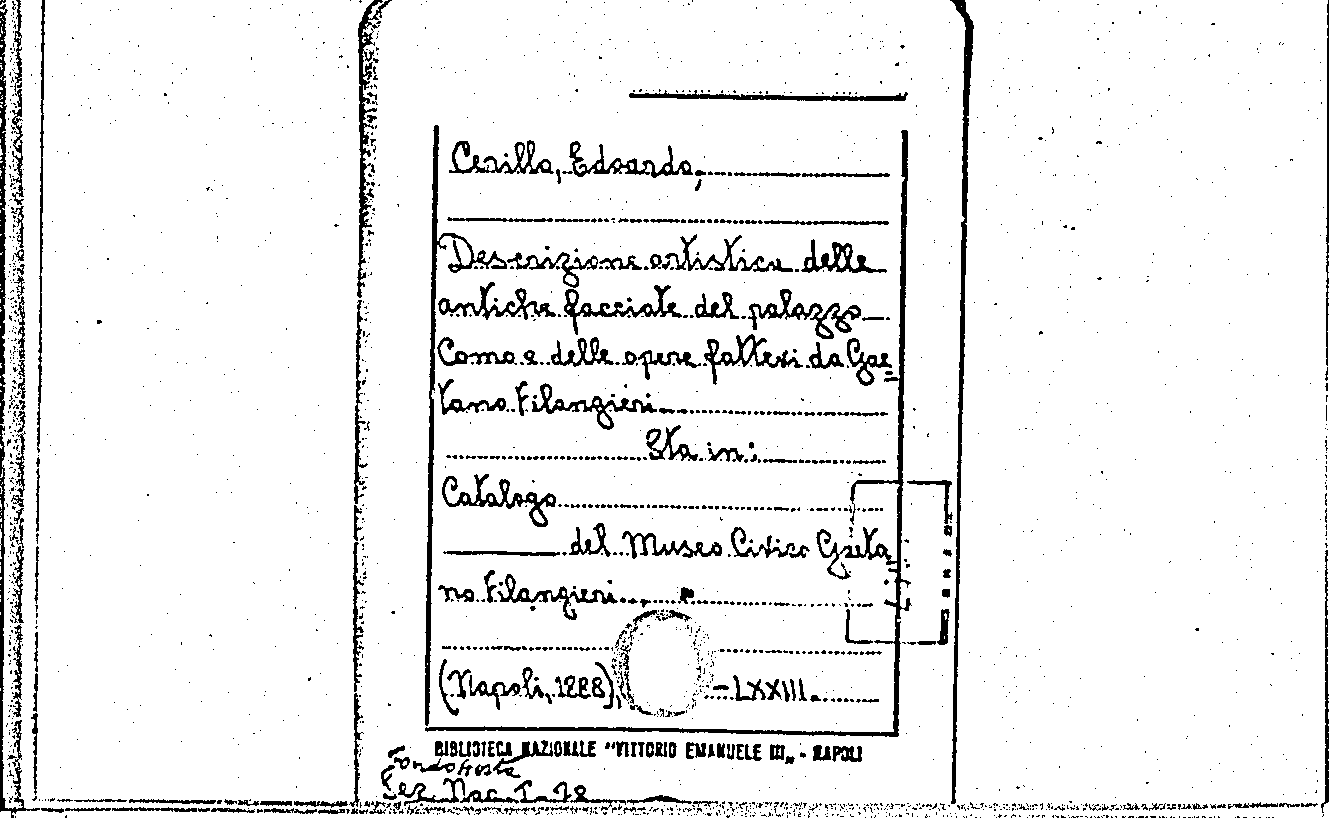 Cerillo, Edoardo,
Descrizione artistica delle
antiche facciate del palazzo
Como e delle opere fattevi da Gae=
tano Filangieri
Sta in:
Catalogo
del Museo Civico Gaeta
no Filangieri...
(Napoli, 1888), -LXXIII.
BIBLIOTECA NAZIONALE "VITTORIO EMANUELE III„ - NAPOLI
Sez. Nap. I